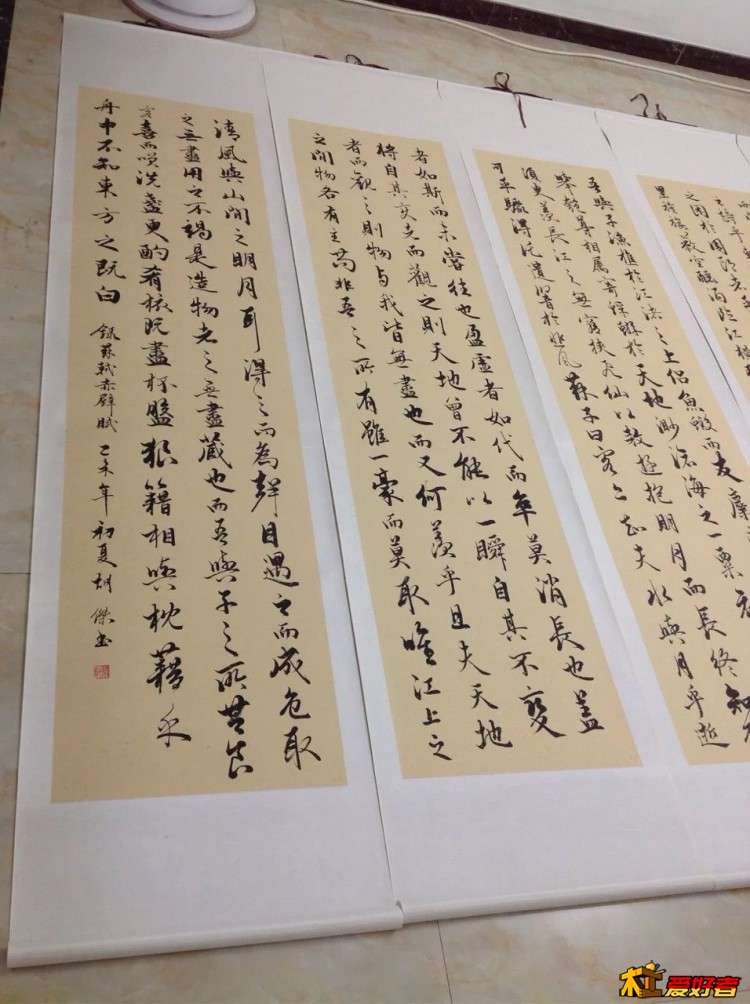 之困於周郎者
里旌旗蔽空釃酒臨江橫
吾與子漁樵於江渚之上侶魚蝦而友麋
舉匏尊相屬寄蜉蝣於天地渺滄海之一粟哀
須臾羨長江之無窮挾飛仙以遨遊抱明月而長終知不
可乎驟得託遺響於悲風蘇子曰客亦知夫水與月乎逝
者如斯而未嘗往也盈虛者如代而卒莫消長也蓋
將自其變者而觀之則天地曾不能以一瞬自其不變
者而觀之則物與我皆無盡也而又何羨乎且夫天地
之間物各有主苟非吾之所有雖一豪而莫取唯江上之
清風與山間之明月耳得之而為聲目遇之而成色取
之無盡用之不竭是造物者之無盡藏也而吾與子之所共食
客喜而笑洗盞更酌肴核既盡杯盤狼籍相與枕藉乎
舟中不知東方之既白 錄蘇軾赤壁賦 乙未年初夏胡傑書
爱好者